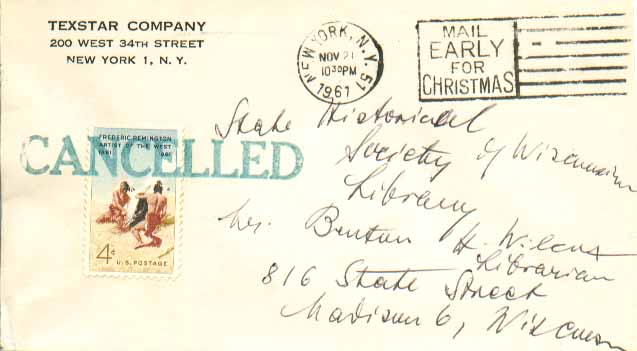 TEXSTAR COMPANY
200 WEST 34TH STREET
NEW YORK 1, N. Y.
NEW YORK, N.Y. 51
NOV 21
10 30 PM
1961
MAIL
EARLY
FOR
CHRISTMAS
CANCELLED
FREDERIC REMINGTON
ARTIST OF THE WEST
1861 1961
4¢
U.S. POSTAGE
State Historical
Society of Wisconsin
Library
Mr. Benton H. Wilcox
Librarian
816 State Street
Madison 6, Wisconsin